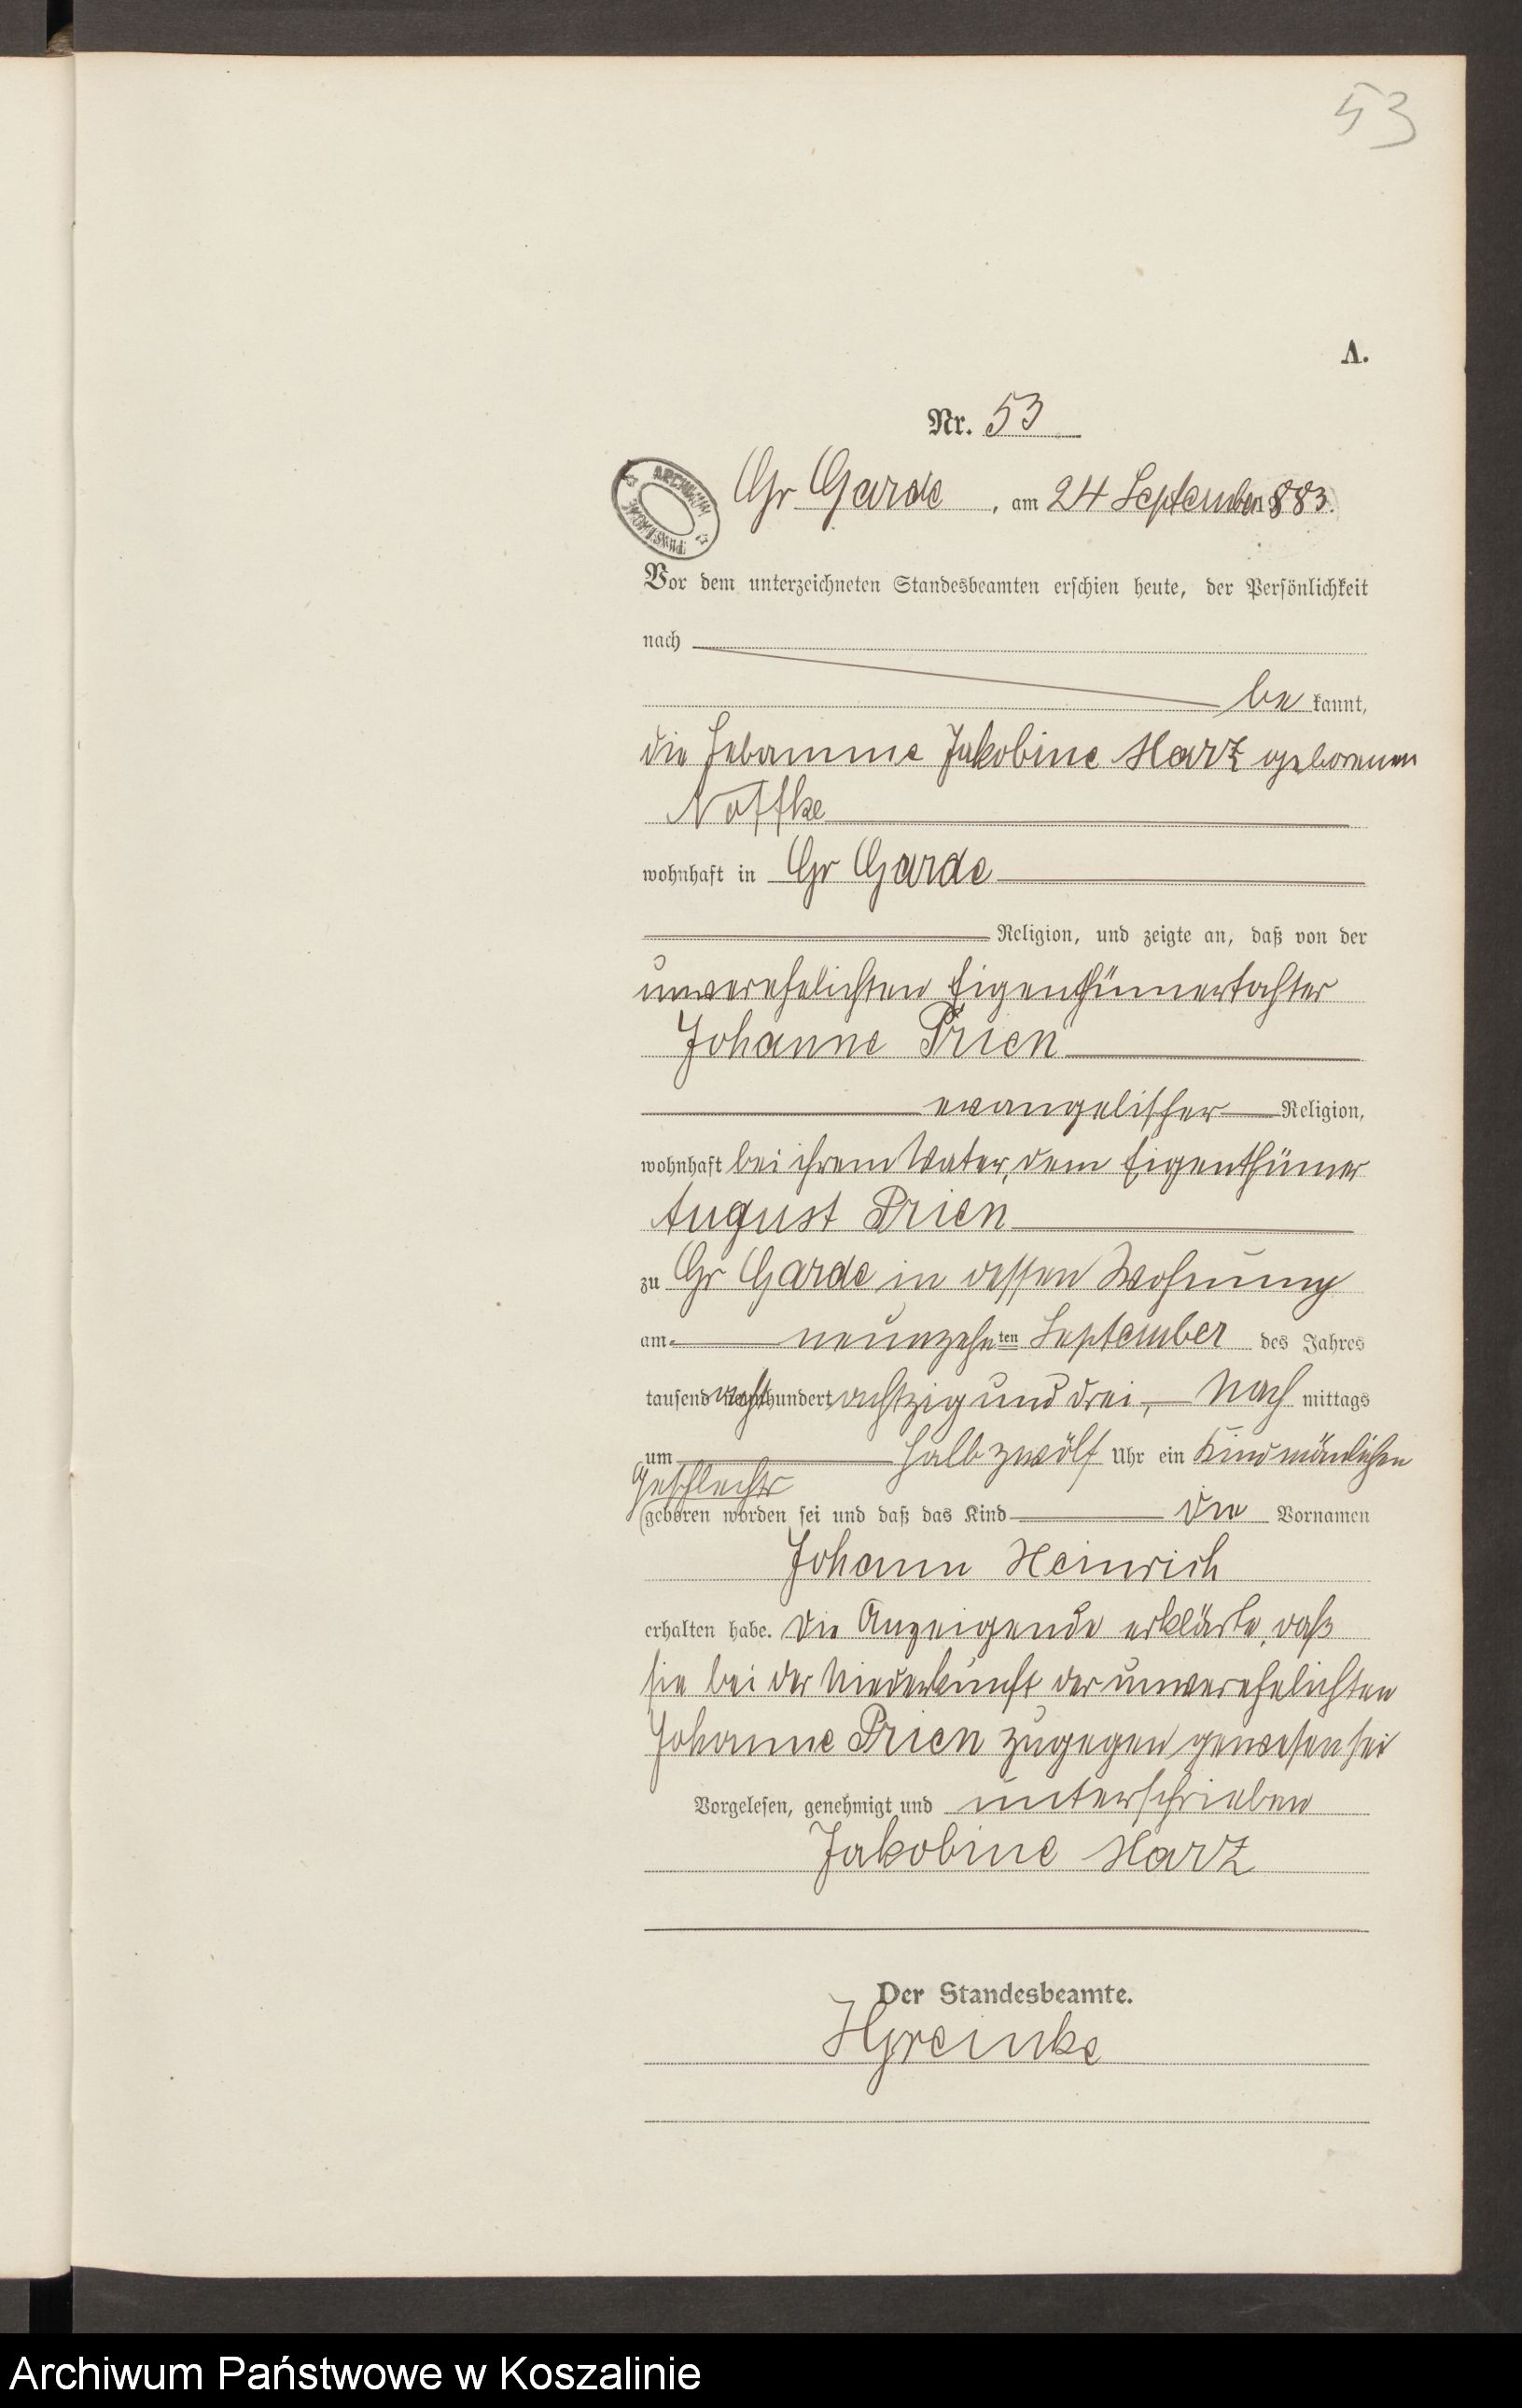 53
A.
Nr. 53
ARCHIWUM PAŃSTWOWE
Gr Garde, am 24 September 1883.
Vor dem unterzeichneten Standesbeamten erschien heute, der Persönlichkeit
nach
be kannt,
die Hebamme Jakobine Harz geborenen
Noffke
wohnhaft in Gr Garde
Religion, und zeigte an, daß von der
unverehelichten Eigenthümertochter
Johanne Prien
evangelischer Religion,
wohnhaft bei ihrem Vater, dem Eigenthümer
August Prien
zu Gr Garde in dessen Wohnung
am neunzehnten September des Jahres
tausend acht hundert achtzig und drei, Nach mittags
um halb zwölf Uhr ein Kind mänlichen
Geschlechts
geboren worden sei und daß das Kind die Vornamen
Johann Heinrich
erhalten habe. Die Anzeigende erklärte, daß
sie bei der Niederkunft der unverehelichten
Johanne Prien zugegen gewesen sei
Vorgelesen, genehmigt und unterschrieben
Jakobine Harz
Der Standesbeamte.
Archiwum Państwowe w Koszalinie